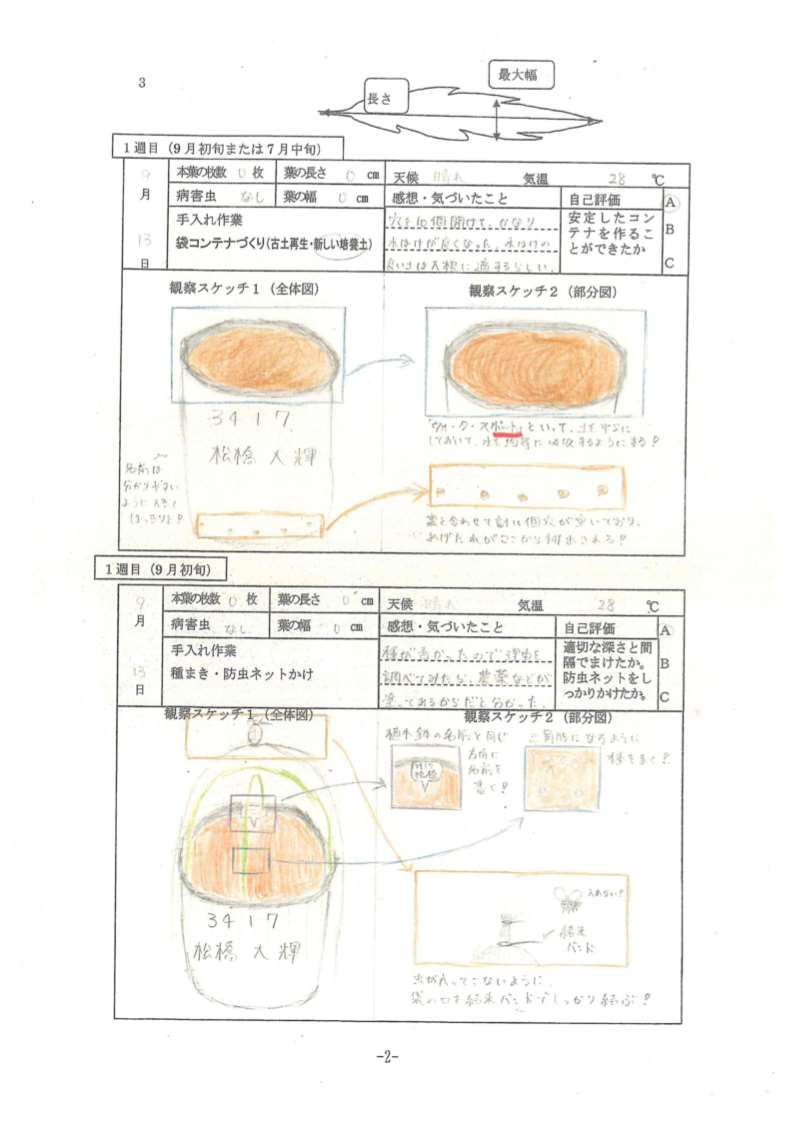 3
長さ
最大幅
1週目（9月初旬または7月中旬）
9月13日
本葉の枚数 0 枚
葉の長さ 0 cm
天候 晴れ
気温 28 ℃
病害虫 なし
葉の幅 0 cm
感想・気づいたこと
自己評価
手入れ作業
袋コンテナづくり（古土再生・新しい培養土）
穴を10個開けて、かなり
水はけが良くなった。水はけの
良いさは大根に適するらしい。
安定したコン
テナを作るこ
とができたか
A
B
C
観察スケッチ1（全体図）
観察スケッチ2（部分図）
3417
松橋 大輝
名前は
分かりやすい
ように大きく
はっきりと！
「ウォーター・スポート」といって、土を平らに
しておいて、水を均等に吸収するようにする！
裏と合わせて計10個穴が空いており、
1週目（9月初旬）
9月13日
本葉の枚数 0 枚
葉の長さ 0 cm
天候 晴れ
気温 28 ℃
病害虫 なし
葉の幅 0 cm
感想・気づいたこと
自己評価
手入れ作業
種まき・防虫ネットかけ
種が青かったので理由を
調べてみたら、農薬などが
塗ってあるからだと分かった。
適切な深さと間
隔でまけたか。
防虫ネットをし
っかりかけたか。
A
B
C
観察スケッチ1（全体図）
観察スケッチ2（部分図）
植木鉢の名前と同じ
場所に
名前を
書く！
三角形になるように
種をまく！
3417
松橋 大輝
入れない！
結束
バンド
虫が入ってこないように、
袋の口を結束バンドでしっかり結ぶ！
-2-